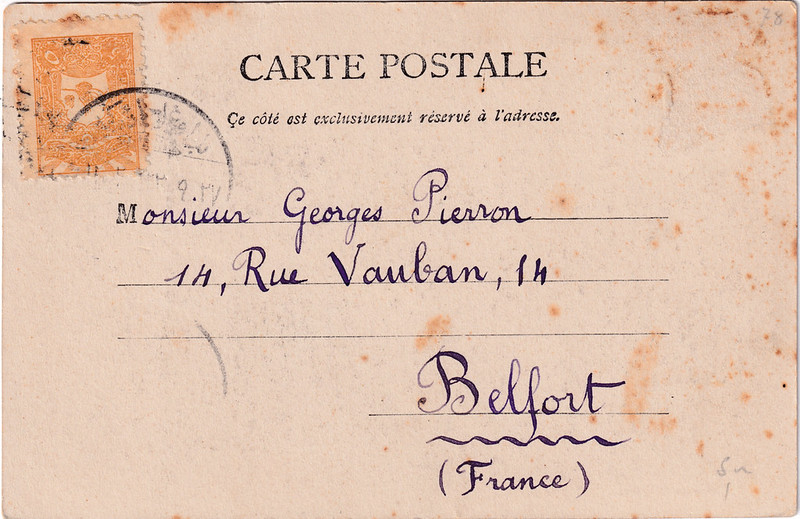 78
CARTE POSTALE
Ce côté est exclusivement réservé à l'adresse.
Monsieur Georges Pierron
14, Rue Vauban, 14
Belfort
(France)